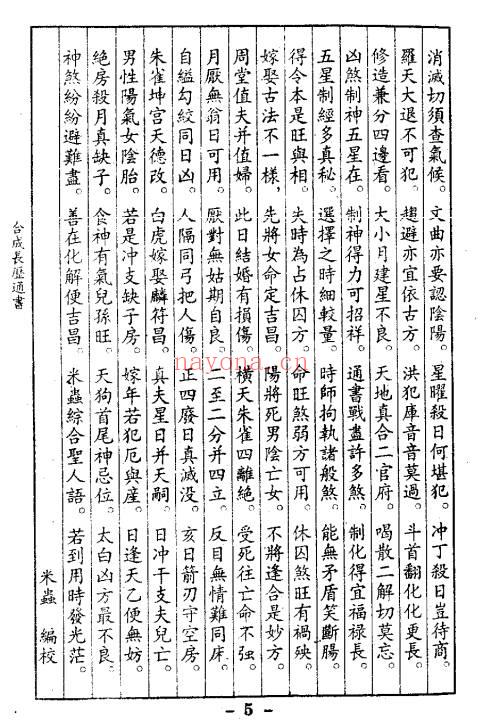 消滅切須查氣候。文曲亦要認陰陽。星曜殺日何堪犯。冲丁殺日豈待商。
羅天大退不可犯。趨避亦宜依古方。洪犯庫音音莫過。斗首翻化化更長。
修造兼分四邊看。大小月建星不良。天地真合二官府。喝散二解切莫忘。
凶煞制神五星在。制神得力可招祥。通書戰盡許多煞。制化得宜福禄長。
五星制經多真秘。選擇之時細較量。時師拘執諸般煞。能無矛盾笑斷腸。
得令本是旺與相。失時為占休囚方。命旺煞弱方可用。休囚煞旺有禍殃。
嫁娶古法不一樣，先將女命定吉昌。陽將死男陰亡女。不將逢合是妙方。
周堂值夫并值婦。此日結婚有損傷。橫天朱雀四離絕。受死往亡命不強。
月厭無翁日可用。厭對無姑期自良。二至二分并四立。反目無情難同床。
自縊勾絞同日凶。人隔同弓把人傷。正四廢日真滅没。亥日箭刃守空房。
朱雀坤宫天德改。白虎嫁娶麟符昌。真夫星日并天嗣。日冲干支夫兒亡。
男性陽氣女陰胎。若是冲支缺子房。嫁年若犯厄與産。日逢天乙便無妨。
絕房殺月真缺子。食神有氣兒孫旺。天狗首尾神忌位。太白凶方最不良。
神煞紛紛避難盡。善在化解便吉昌。米蟲綜合聖人語。若到用時發光茫。
米蟲 編校
合成長曆通書
- 5 -
nayona.cn